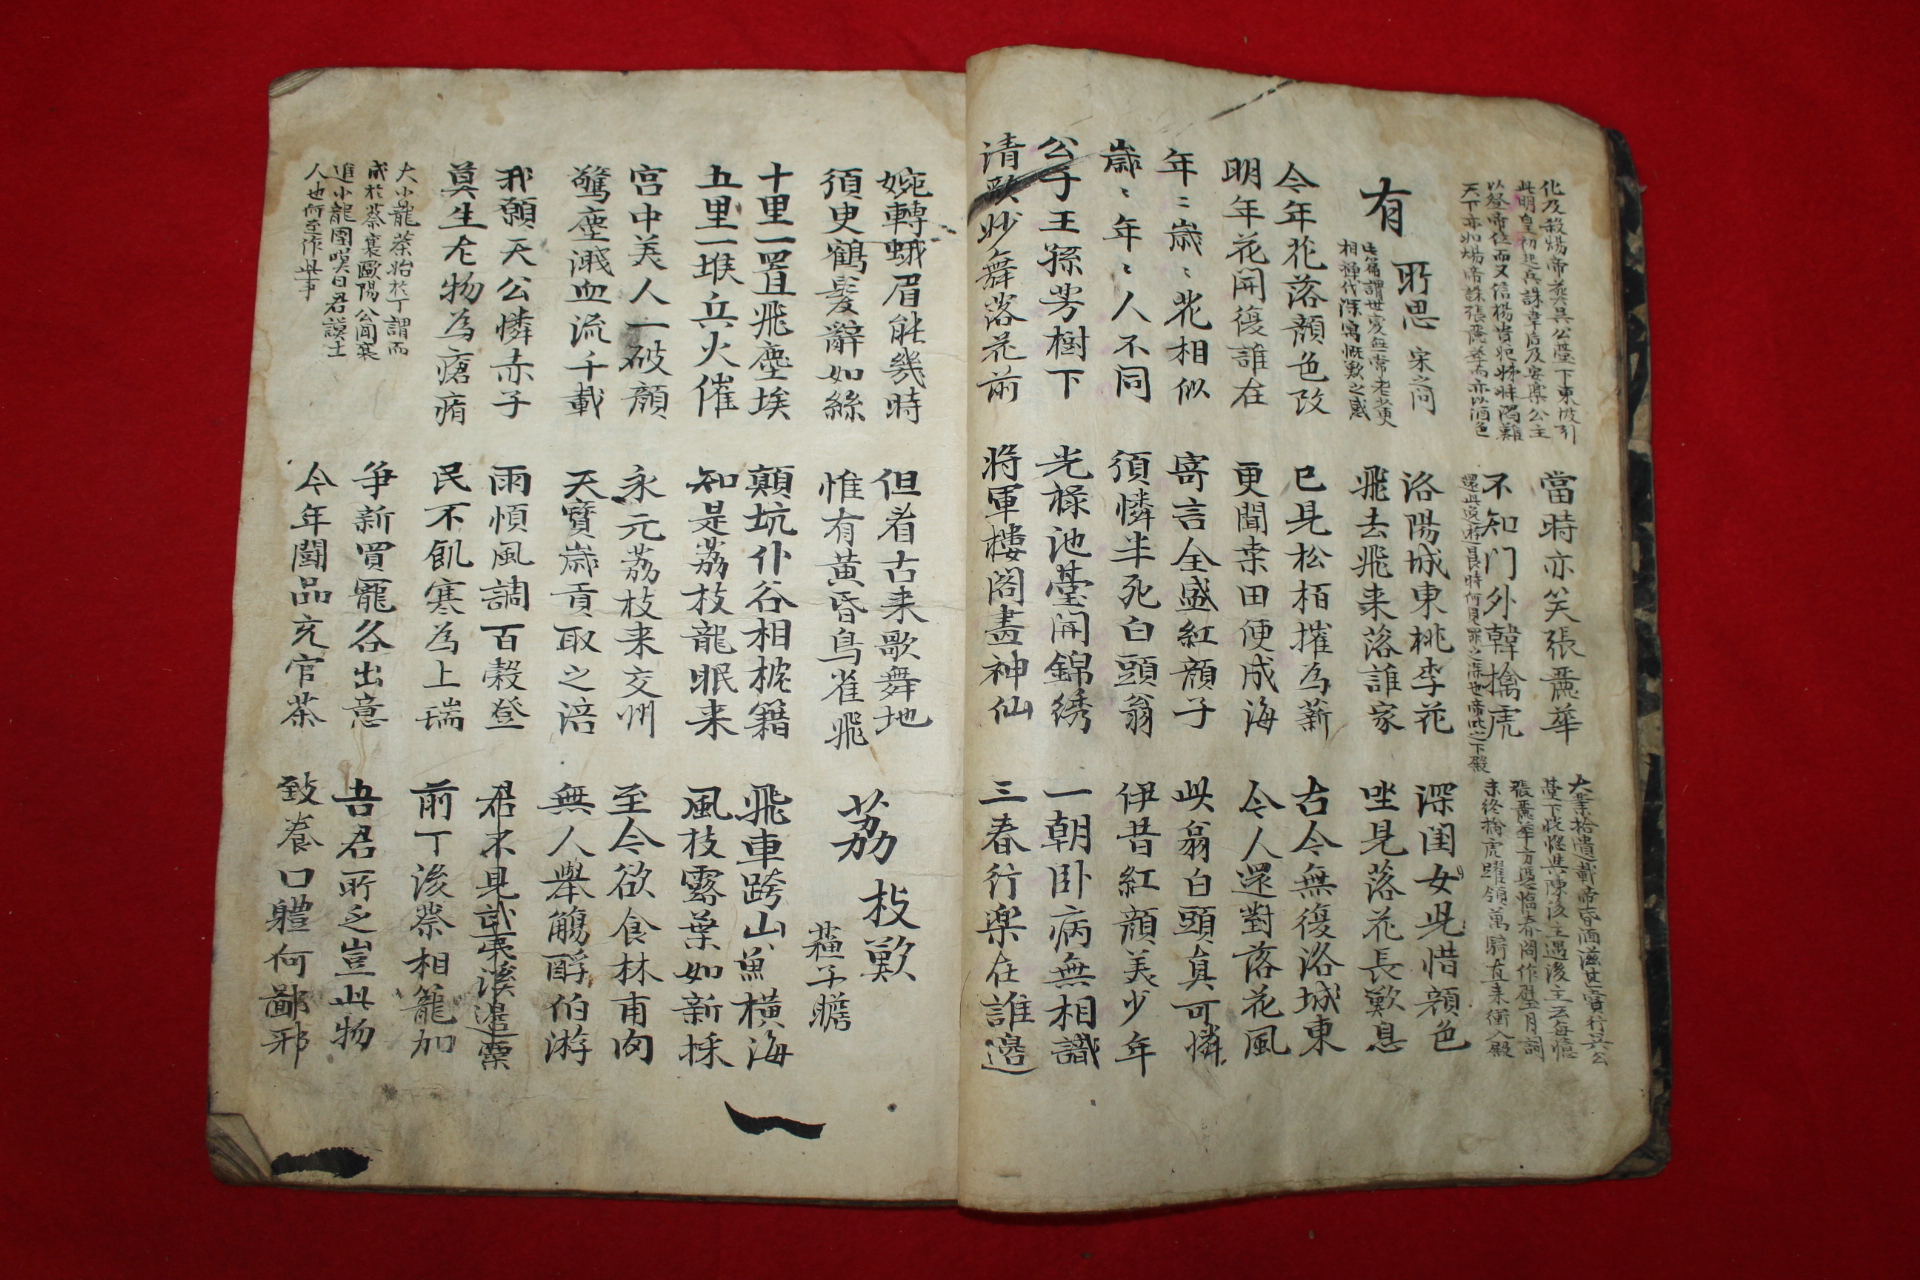 化及殺煬帝葬吳公臺下東坡引
此明皇初起兵誅韋后及安樂公主
以登帝位而又信楊貴妃姊妹溺難
天下亦如煬帝誅張麗華而亦以酒色
當時亦笑張麗華
不知门外韓擒虎
還此後遊長時何見罪之深也帝叱之下殿
大業拾遺載帝昏湎滋甚嘗行吳公
臺下恍惚與陳後主遇後主云每憶
張麗華方憑臨春閣作璧月詞
未終擒虎躍領萬騎直來衝入殿
有所思 宋之问
此篇謂世変無常老黃
相禪代深寓慨歎之感
洛陽城東桃李花
飛去飛来落誰家
深閨女児惜顔色
坐見落花長歎息
今年花落顔色改
明年花開復誰在
已見松栢摧為薪
更聞桒田便成海
古今無復洛城東
今人還對落花風
年〻歳〻花相似
歳〻年〻人不同
寄言全盛紅顔子
須憐半死白頭翁
此翁白頭真可憐
伊昔紅顔美少年
公子王孫芳樹下
清歌妙舞落花前
光祿池臺開錦綉
將軍樓閣畫神仙
一朝卧病無相識
三春行楽在誰邉
婉轉蛾眉能幾時
須臾鶴髪辭如絲
但看古来歌舞地
惟有黃昏鳥雀飛
荔枝歎
蘇子瞻
十里一置飛塵埃
五里一堠兵火催
顛坑仆谷相枕籍
知是荔枝龍眼来
飛車跨山魚橫海
風枝露葉如新採
宮中美人一破顔
驚塵濺血流千載
永元荔枝来交州
天寶歳貢取之涪
至今欲食林甫肉
無人舉觴酹伯游
我願天公憐赤子
莫生尤物為瘡痏
雨順風調百穀登
民不飢寒為上瑞
君不見武夷溪邉粟
前丁後蔡相籠加
大小龍茶始於丁謂而
成於蔡襄歐陽公聞襄
進小龍團嘆曰君謨士
人也何至作此事
爭新買寵各出意
今年鬪品充官茶
吾君所乏豈此物
致養口軆何鄙邪